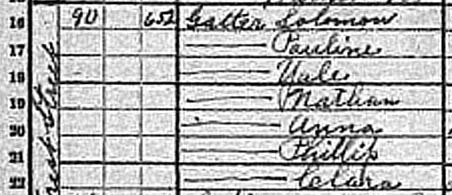 16 90 652 Galter Solomon
17 —— Pauline
18 —— Yale
19 —— Nathan
20 —— Anna
21 —— Phillip
22 —— Clara
Street